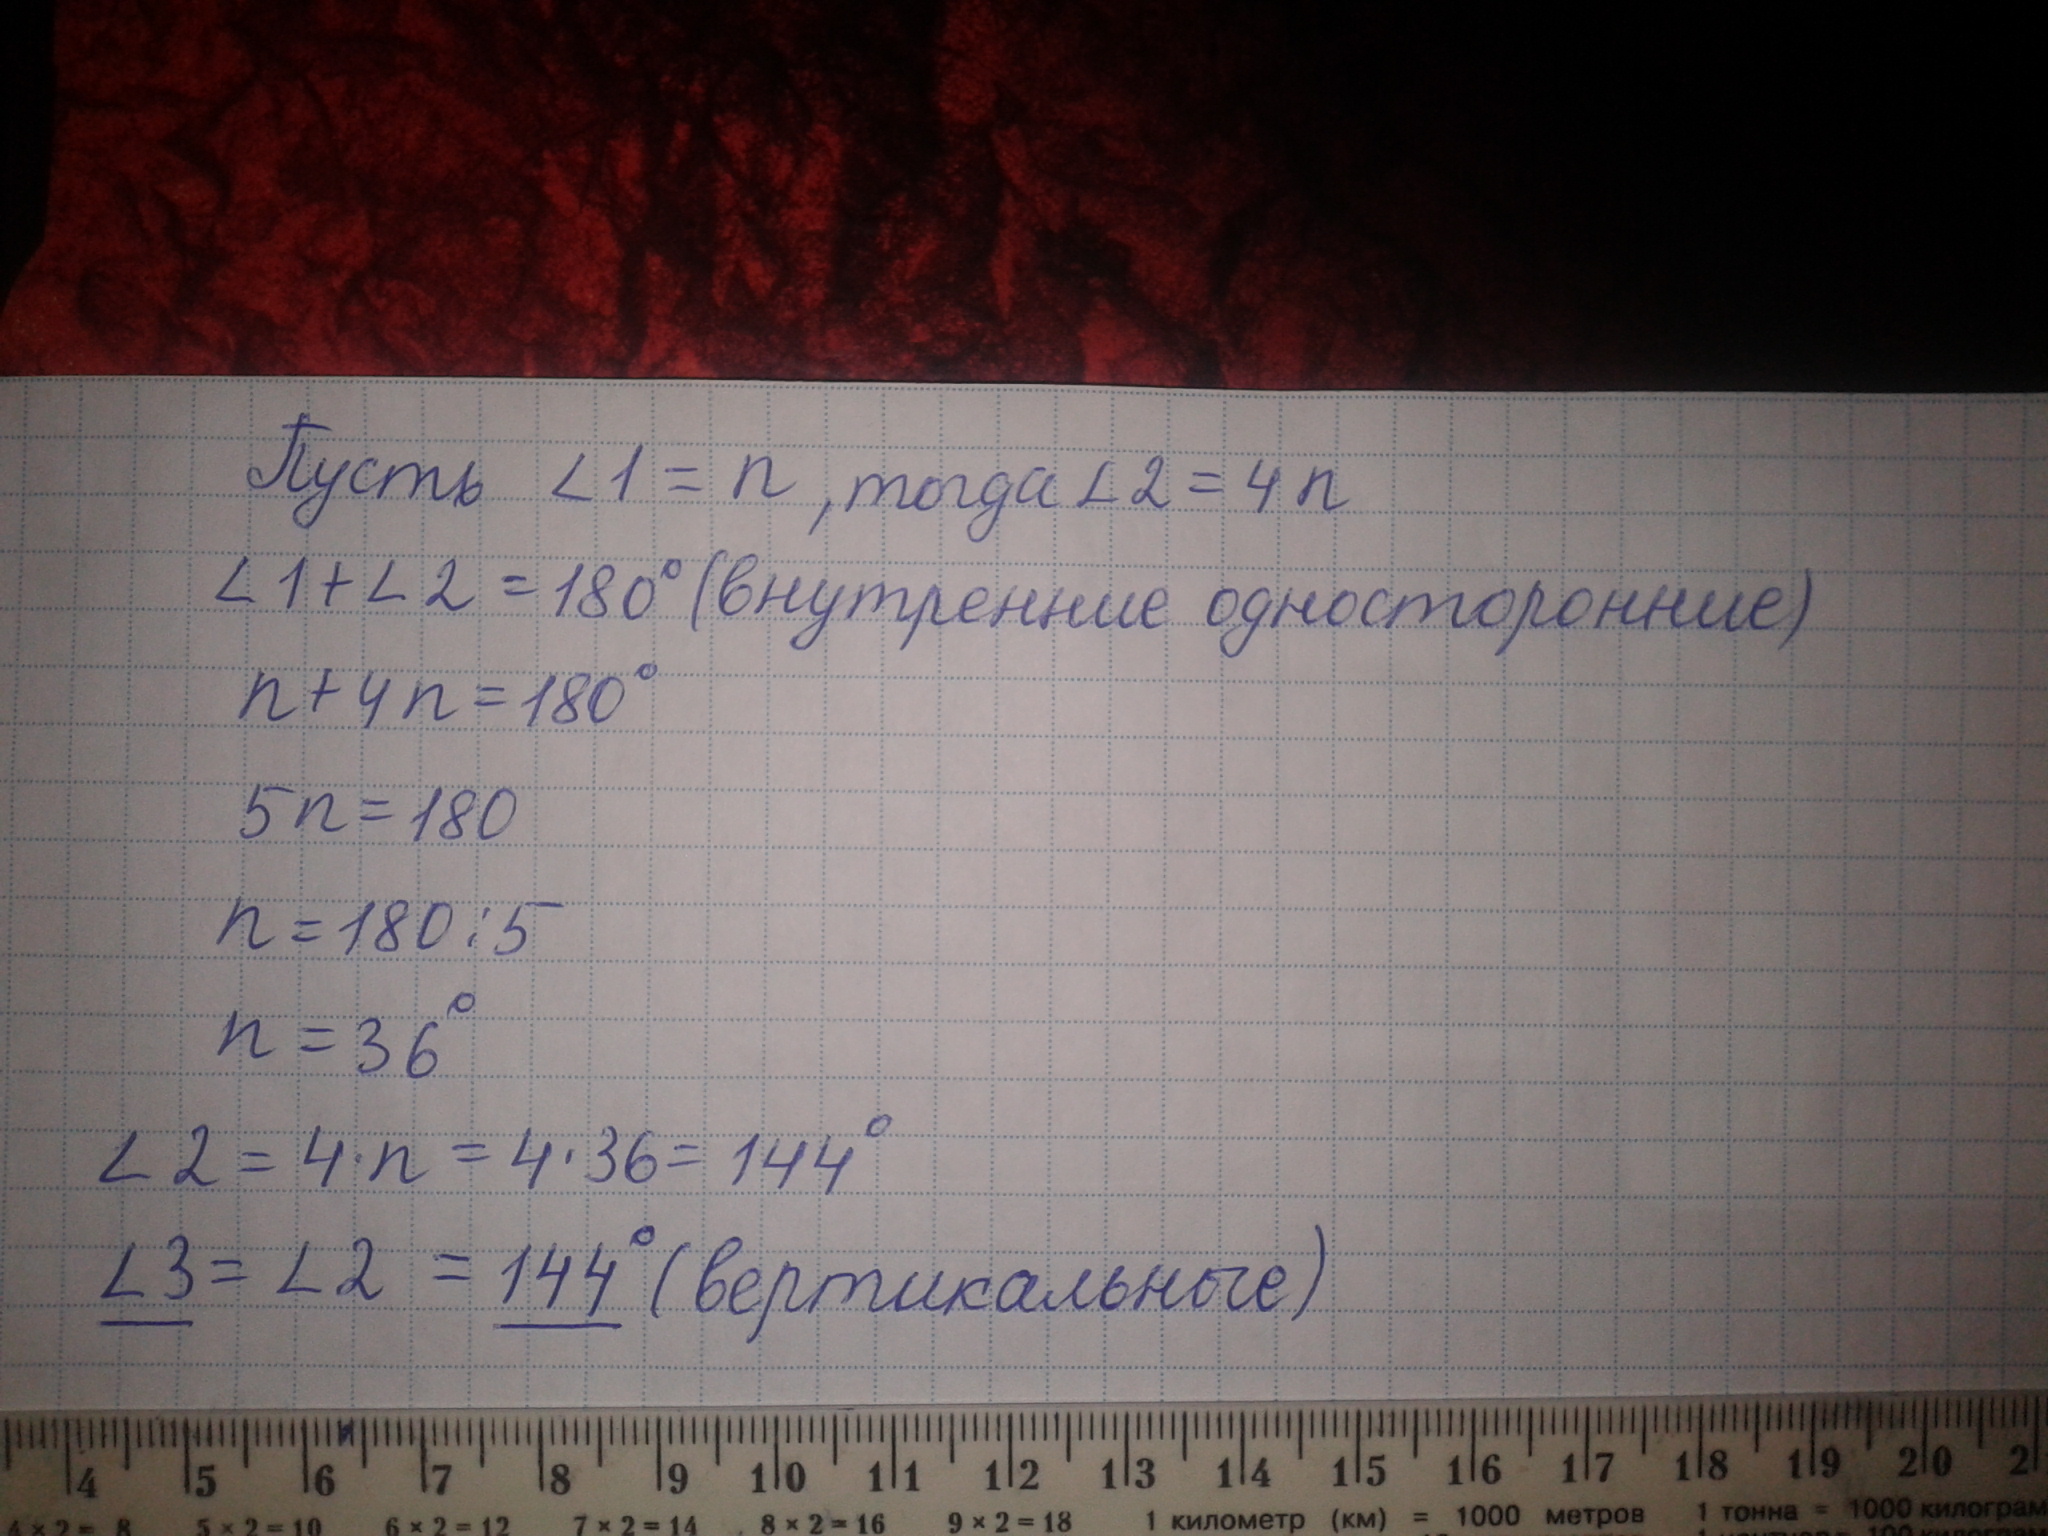 Пусть ∠1 = n, тогда ∠2 = 4n
∠1+∠2 = 180° (внутренние односторонние)
n+4n = 180°
5n = 180
n = 180:5
n = 36°
∠2 = 4·n = 4·36 = 144°
∠3 = ∠2 = 144° (вертикальные)
4 5 6 7 8 9 10 11 12 13 14 15 16 17 18 19 20 2
4×2= 8 5×2=10 6×2=12 7×2=14 8×2=16 9×2=18 1 километр (км) = 1000 метров 1 тонна = 1000 килограм